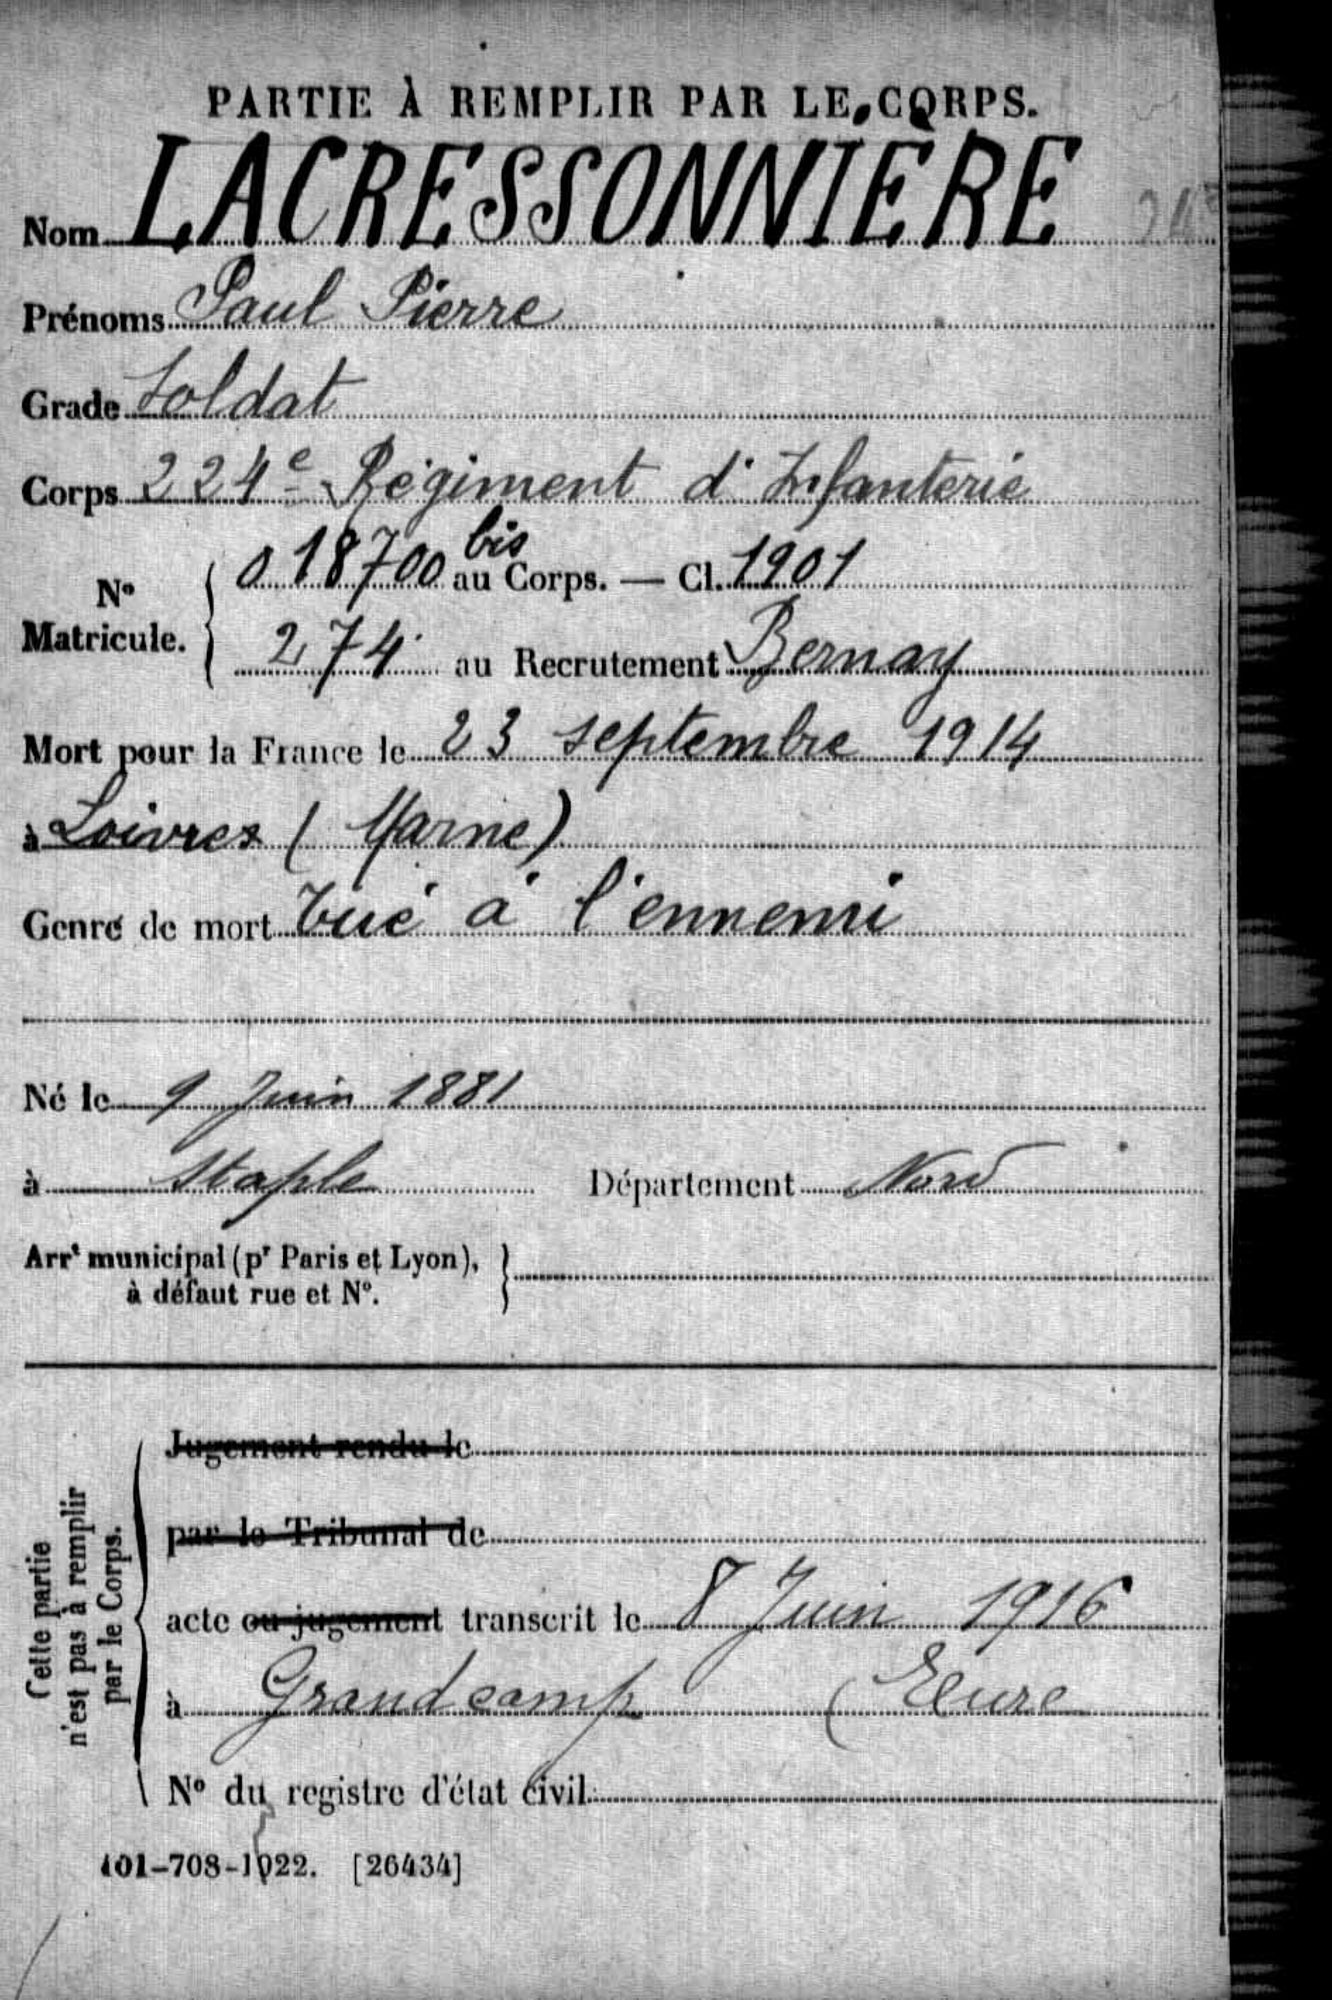 PARTIE À REMPLIR PAR LE CORPS.
Nom LACRESSONNIÈRE
Prénoms Paul Pierre
Grade Soldat
Corps 224e Régiment d'Infanterie
No Matricule. { 0 18700 bis au Corps. — Cl. 1901
274 au Recrutement Bernay
Mort pour la France le 23 septembre 1914
à Loivres (Marne)
Genre de mort tué à l'ennemi
Né le 9 Juin 1881
à Staple Département Nord
Arrt municipal (pr Paris et Lyon), }
à défaut rue et No.
Cette partie
n'est pas à remplir
par le Corps.
Jugement rendu le
par le Tribunal de
acte ou jugement transcrit le 8 Juin 1916
à Grandcamp (Eure
No du registre d'état civil
101-708-1922. [26434]